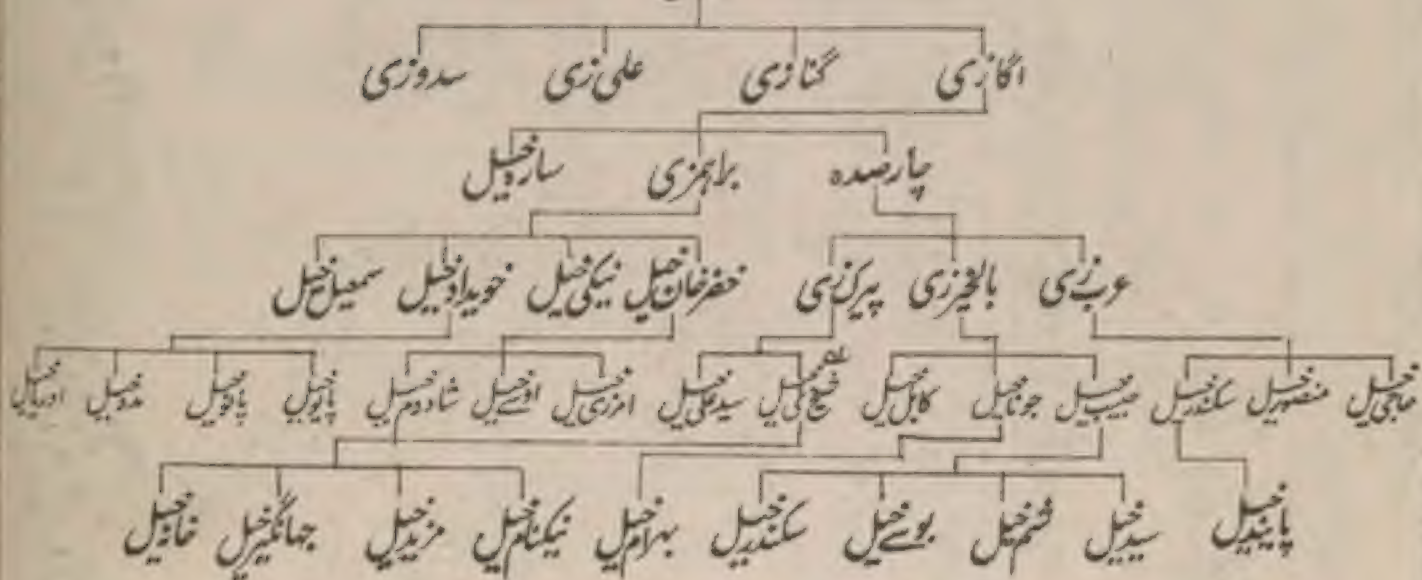 اکازی گنازی علی زی سدوزی
چارصده براہمزی سارہ خیل
عرب زی بالخیرزی پیرک زی خضرخان خیل نیکی خیل خویدادخیل سمعیل خیل
حاجی خیل منصورخیل سکندرخیل حبیب خیل جوناخیل کابل خیل سیدعلی خیل امزری خیل شادوم خیل پایوخیل
پایندخیل سیدخیل بوسےخیل سکندرخیل بہرام خیل نیکنام خیل مزیدخیل جہانگیرخیل خانہ خیل